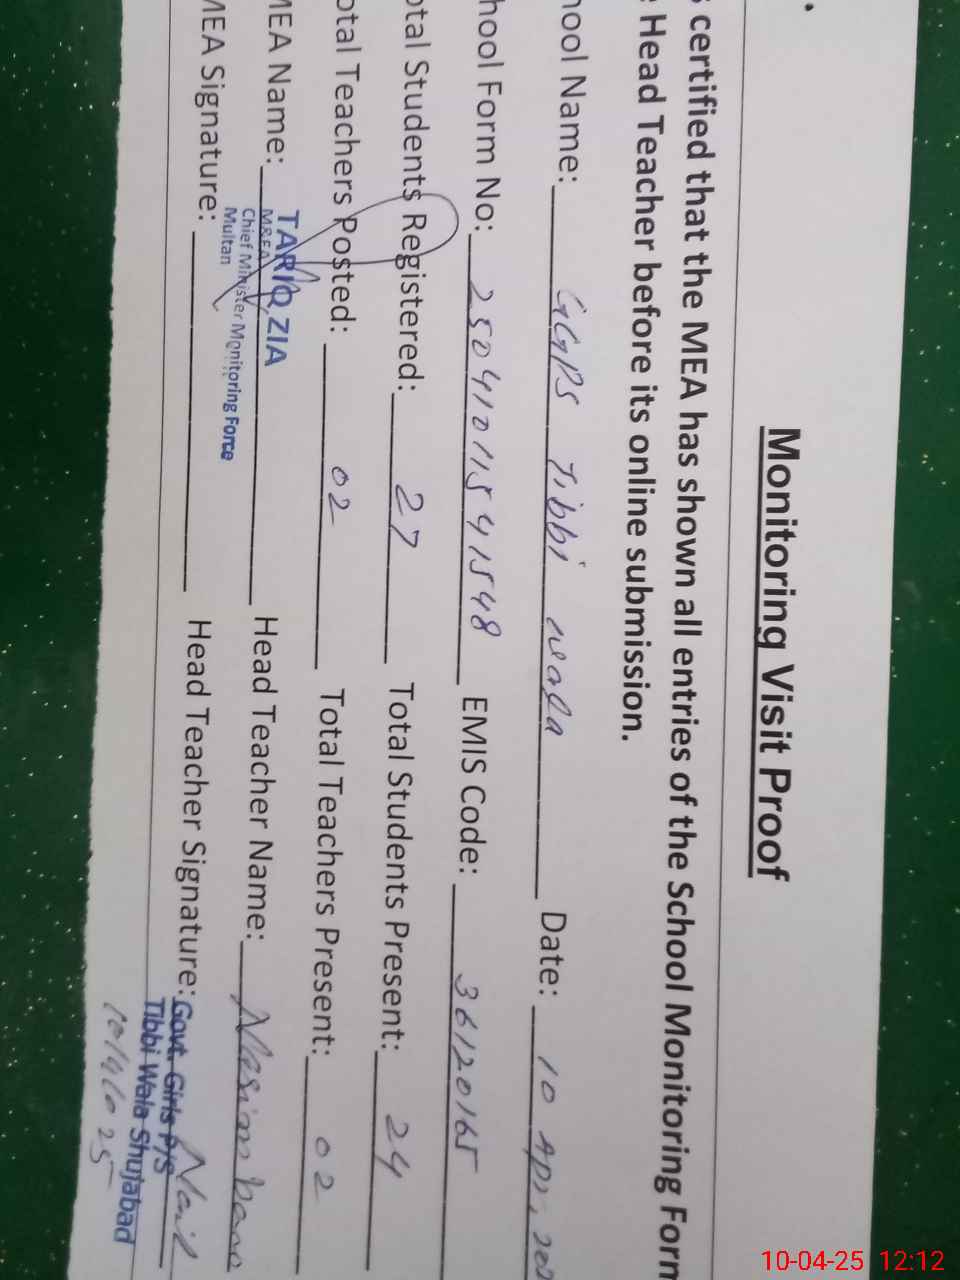 Monitoring Visit Proof
s certified that the MEA has shown all entries of the School Monitoring Form
e Head Teacher before its online submission.
hool Name: GGPS Tibbi wala Date: 10 Apr, 202
hool Form No: 25041011541548 EMIS Code: 36120165
otal Students Registered: 27 Total Students Present: 24
otal Teachers Posted: 02 Total Teachers Present: 02
MEA Name: TARIQ ZIA Head Teacher Name: Nasim bano
M&EA
Chief Minister Monitoring Force
Multan
MEA Signature: Head Teacher Signature:
Govt. Girls P/S
Tibbi Wala Shujabad
10-04-25 12:12